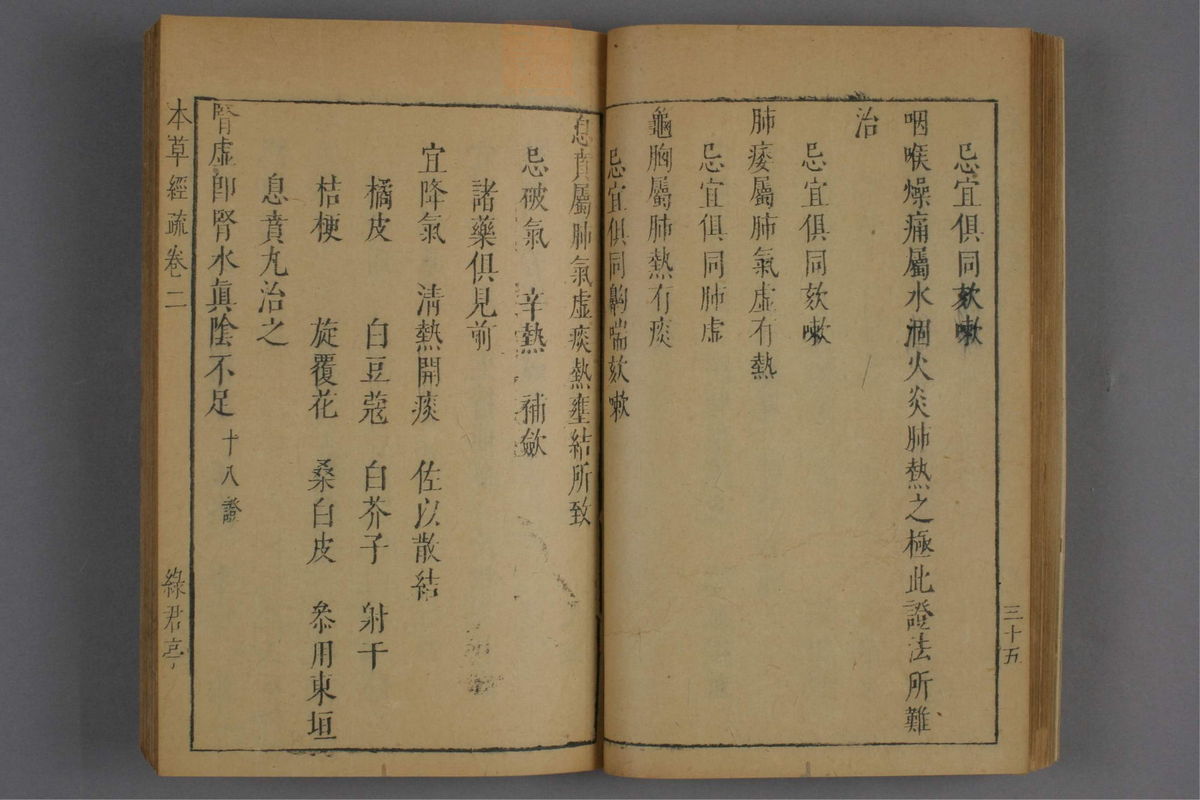 忌宜俱同欬嗽
咽喉燥痛屬水涸火炎肺熱之極此證法所難
治
忌宜俱同欬嗽
肺痿屬肺氣虛有熱
忌宜俱同肺虛
龜胸屬肺熱有痰
忌宜俱同齁喘欬嗽
三十五
息賁屬肺氣虛痰熱壅結所致
忌破氣 辛熱 補斂
諸藥俱見前
宜降氣 清熱開痰 佐以散結
橘皮 白豆蔻 白芥子 射干
桔梗 旋覆花 桑白皮 叅用東垣
息賁丸治之
腎虛卽腎水眞陰不足 十八證
本草經疏卷二 綠君亭